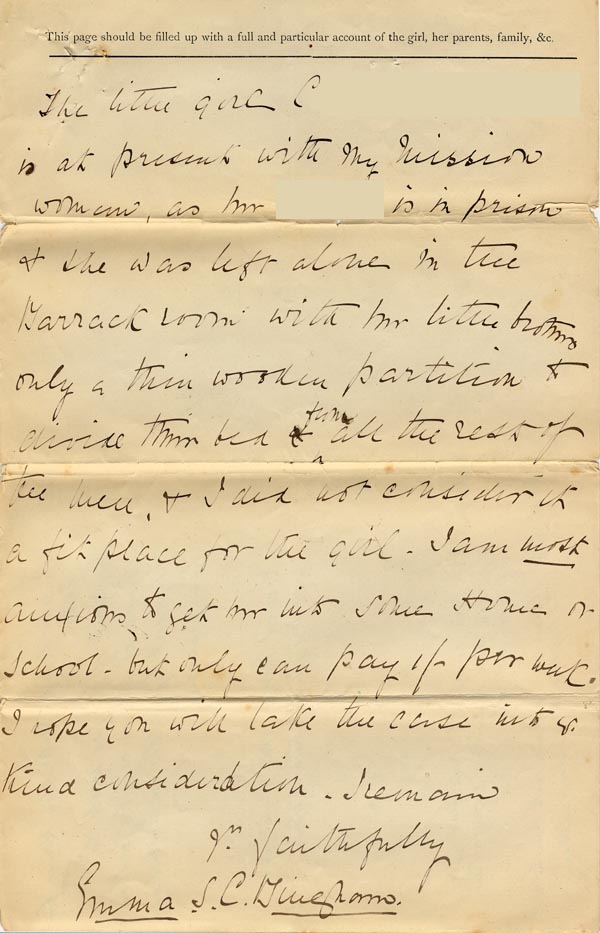 This page should be filled up with a full and particular account of the girl, her parents, family, &c.
The little girl C
is at present with my Mission
woman, as her is in prison
& she was left alone in the
Barrack room with her little brothers
only a thin wooden partition to
divide their bed from all the rest of
the men, & I did not consider it
a fit place for the girl - I am most
anxious to get her into some Home or
School - but only can pay 1/- per week.
I hope you will take the case into yr.
kind consideration - I remain
Yrs faithfully
Emma S. C. Bingham.